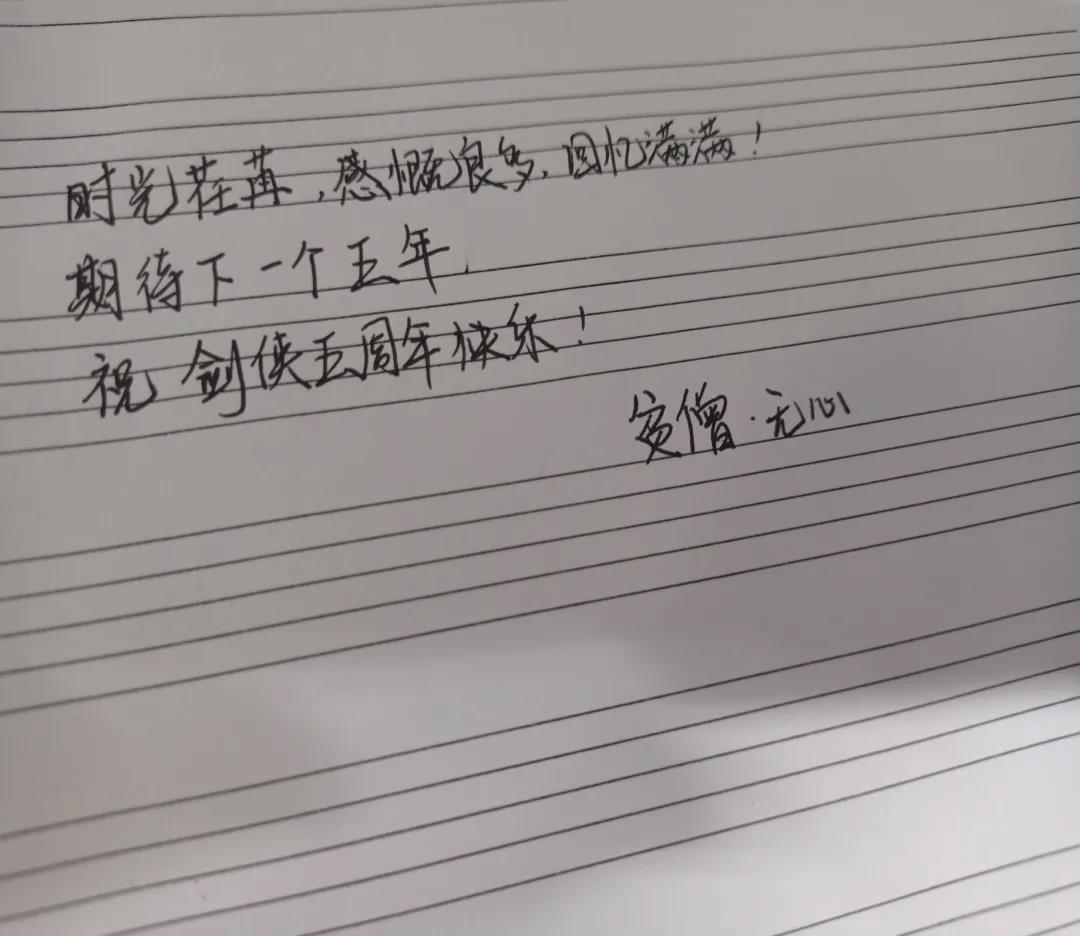 时光荏苒，感慨良多，回忆满满！
期待下一个五年.
祝 剑侠五周年快乐！
贫僧·无心